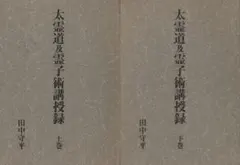 太霊道及霊子術講授録
上巻
田中守平
太霊道及霊子術講授録
下巻
田中守平